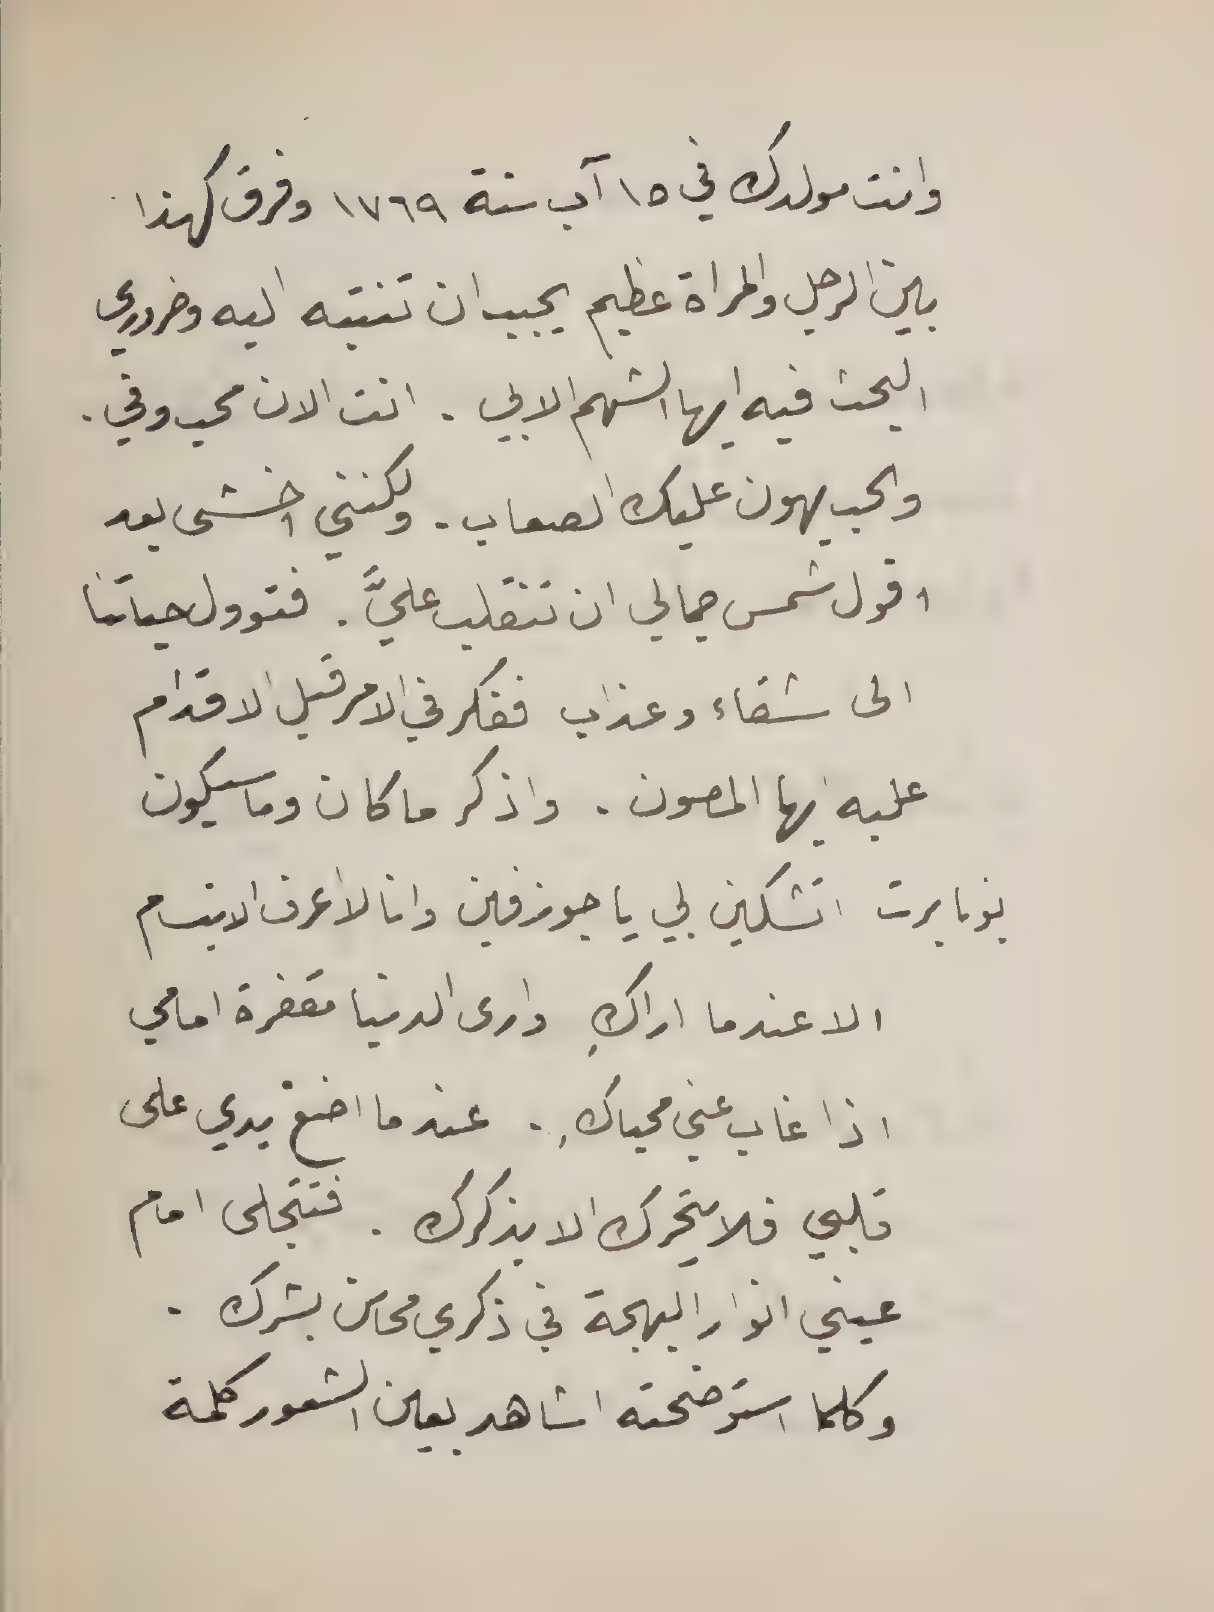 وانت مولدك في ١٥ آب سنة ١٧٦٩ وفرق كهذا
بين الرجل والمراة عظيم يجب ان تنتبه اليه وضروري
البحث فيه ايها الشهم الابي . انت الان محب وفي .
والحب يهون عليك الصعاب . ولكنني اخشى بعد
افول شمس جمالي ان تنقلب عليَّ . فتوول حياتنا
الى شقاء وعذاب ففكر في الامر قبل الاقدام
عليه ايها المصون . واذكر ما كان وما سيكون
بونابرت اتشكين بي يا جوزفين وانا لا اعرف الابتسام
الا عندما اراكِ وارى الدنيا مقفرة امامي
اذا غاب عني محياكِ . عندما اضع يدي على
قلبي فلا يتحرك الا بذكرك . فتتجلى امام
عيني انوار البهجة في ذكرى محاسن بشرك .
وكلما استوضحته اشاهد بعين الشعور كلمة